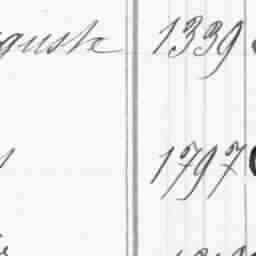 guste 1339
1797